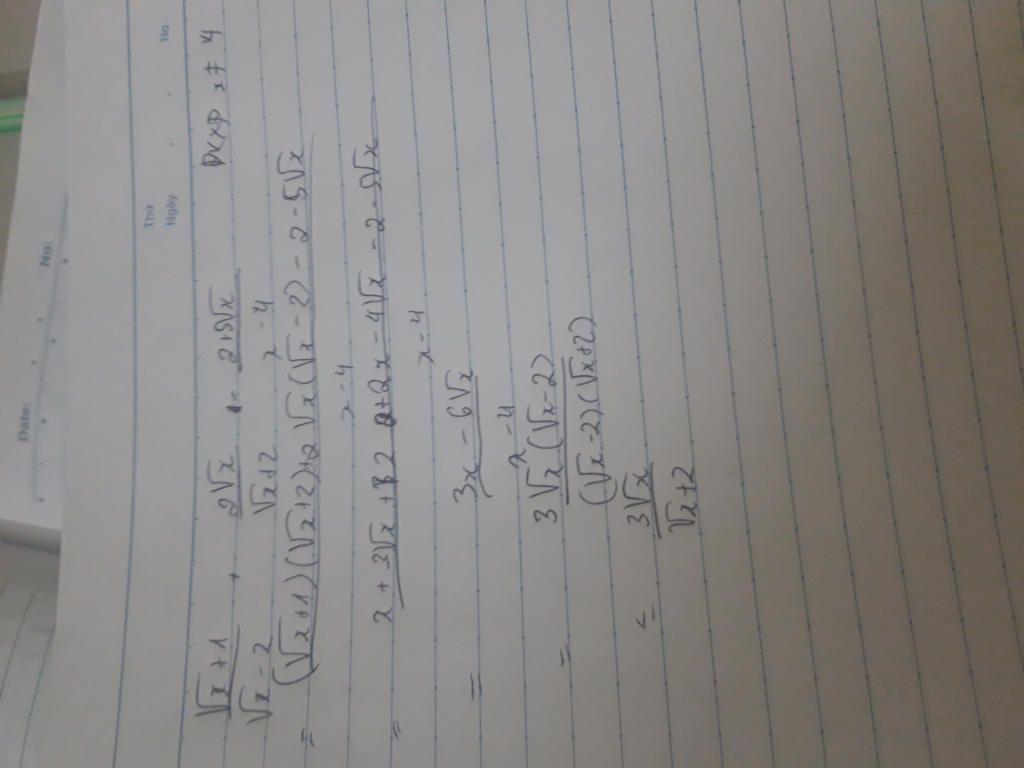 Date:
No:
Thứ
Ngày
No.
ĐKXĐ x ≠ 4
√x + 1 / √x - 2 + 2√x / √x + 2 - 2+5√x / x - 4
= (√x + 1)(√x + 2) + 2√x(√x - 2) - 2 - 5√x / x - 4
= x + 3√x + 2 + 2x - 4√x - 2 - 5√x / x - 4
= 3x - 6√x / x - 4
= 3√x(√x - 2) / (√x - 2).(√x + 2)
= 3√x / √x + 2